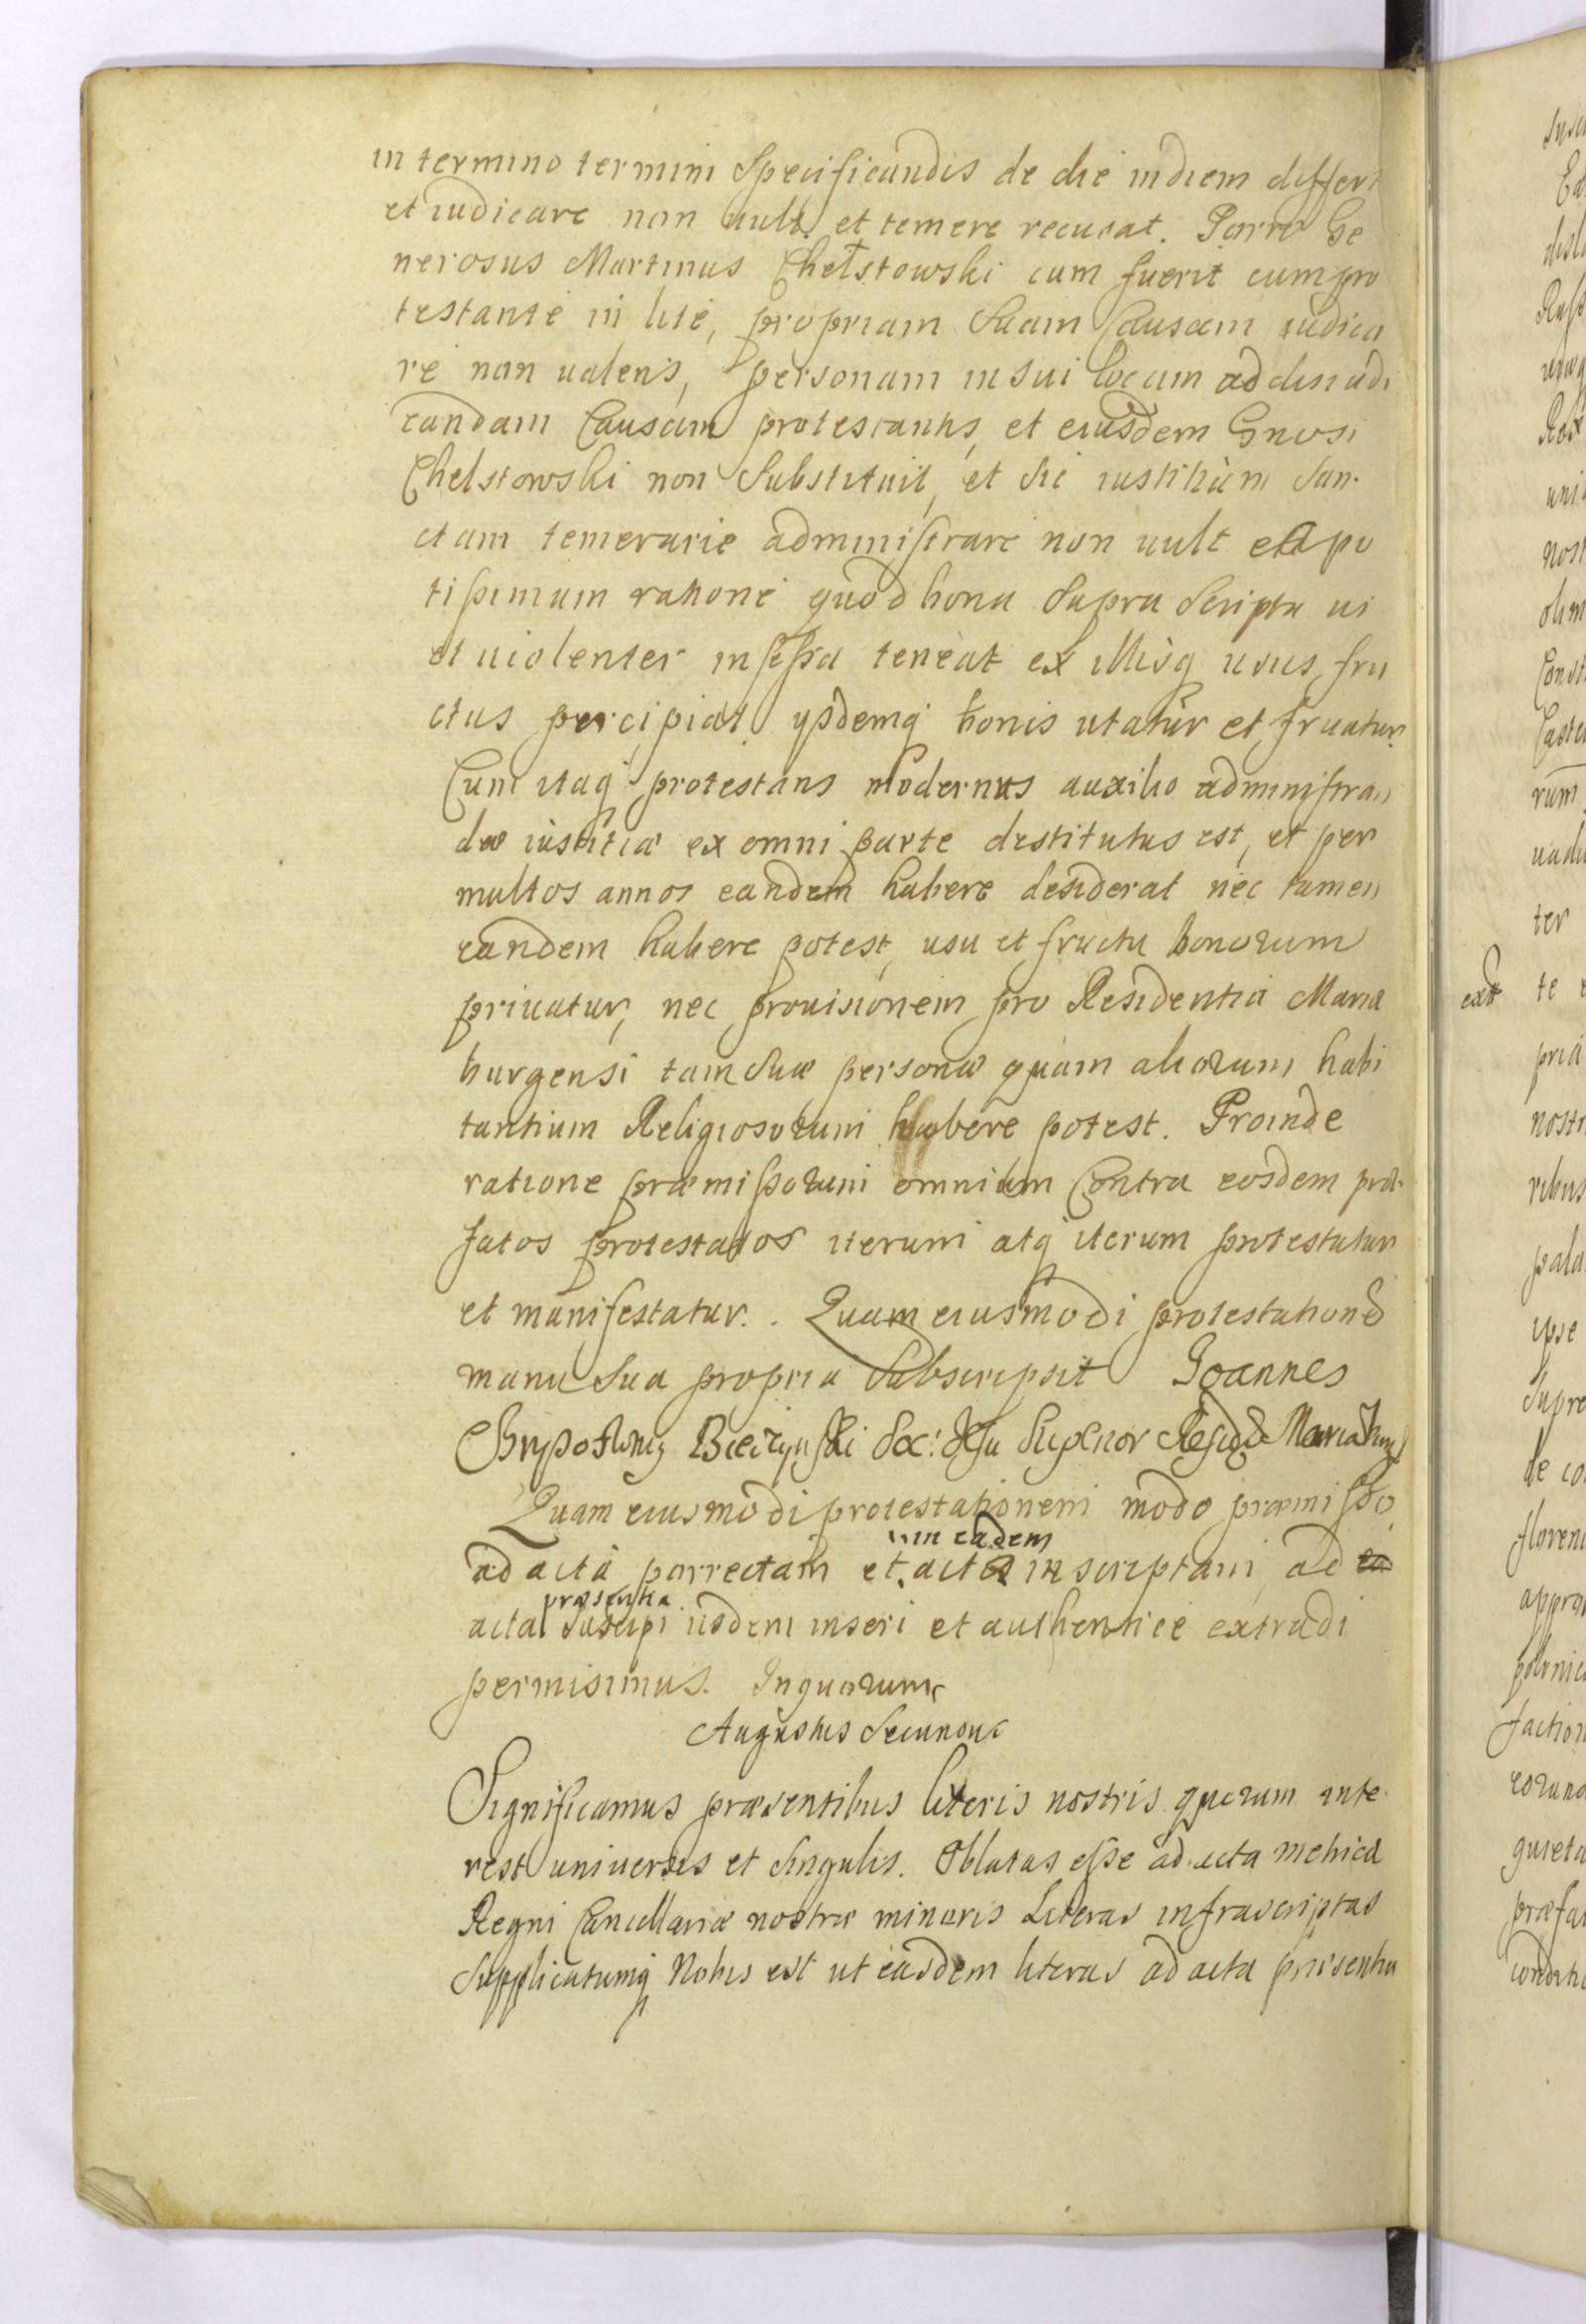 in termino termini specificandis de die in diem differt
et iudicare non uult et temere recusat. Porro Ge
nerosus Martinus Chełstowski cum fuerit cum pro
testante in lite, propriam suam Causam iudica
re non ualens, personam in sui locum ad diiudi
candam Causam protestantis, et eiusdem Gnosi
Chelstowski non substituit, et sic iustitiam san-
ctam temerarie administrare non uult ea po
tissimum ratione quod bona supra scripta ui
et uiolenter insessa teneat ex illisq usus fru
ctus percipiat ysdemq bonis utatur et fruatur.
Cum itaq protestans modernus auxilio administran
dæ iustitiæ ex omni parte destitutus est, et per
multos annos eandem habere desiderat nec tamen
eandem habere potest, usu et fructu bonorum
priuatur, nec prouisionem pro Residentia Mariæ
burgensi tam suæ personæ quam aliorum habi
tantium Religiosorum habere potest. Proinde
ratione præmissorum omnium Contra eosdem præ-
fatos protestatos iterum atq iterum protestatur
et manifestatur. . Quam eiusmodi protestatione
manu sua propria subscripsit Joannes
Bieczynski Soc: Jesu Superior
Quam eiusmodi protestationem modo præmisso
in eadem
ad acta porrectam et acta inscriptam ad ea
præsentia
acta suscipi iisdem inseri et authentice extradi
permisimus. In quorum
Augustus Secundus
Significamus præsentibus literis nostris quorum inte-
rest uniuersis et singulis. Oblatas esse ad acta metrica
Regni Cancellariæ nostræ minoris Literas infrascriptas
supplicatumq Nobis est ut easdem literas ad acta præsentia